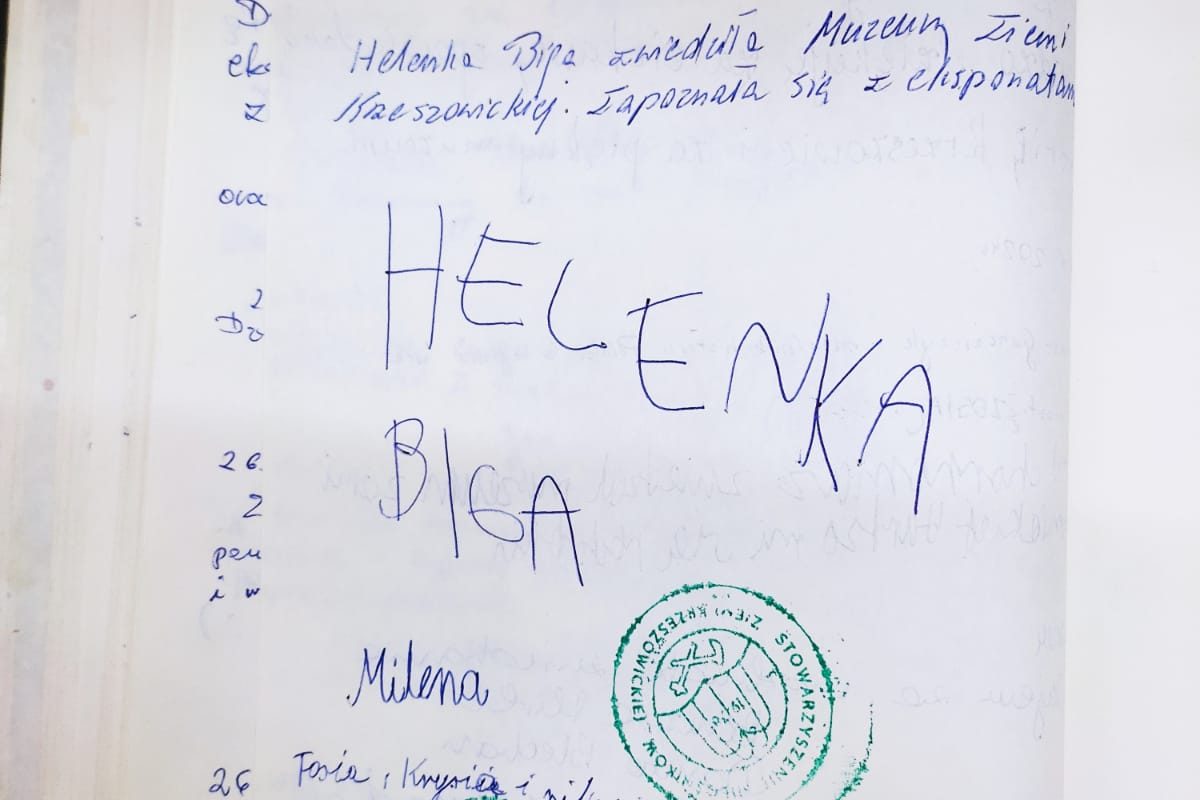 D
eks
z
Helenka Biga zwiedziła Muzeum Ziemi
Krzeszowickiej. Zapoznała się z eksponatam
ova
2
Do
HELENKA
BIGA
26.
2
pem
i w
Milena
STOWARZYSZENIE MIŁOŚNIKÓW ZIEMI KRZESZOWICKIEJ
26
Tosia, Krysia i